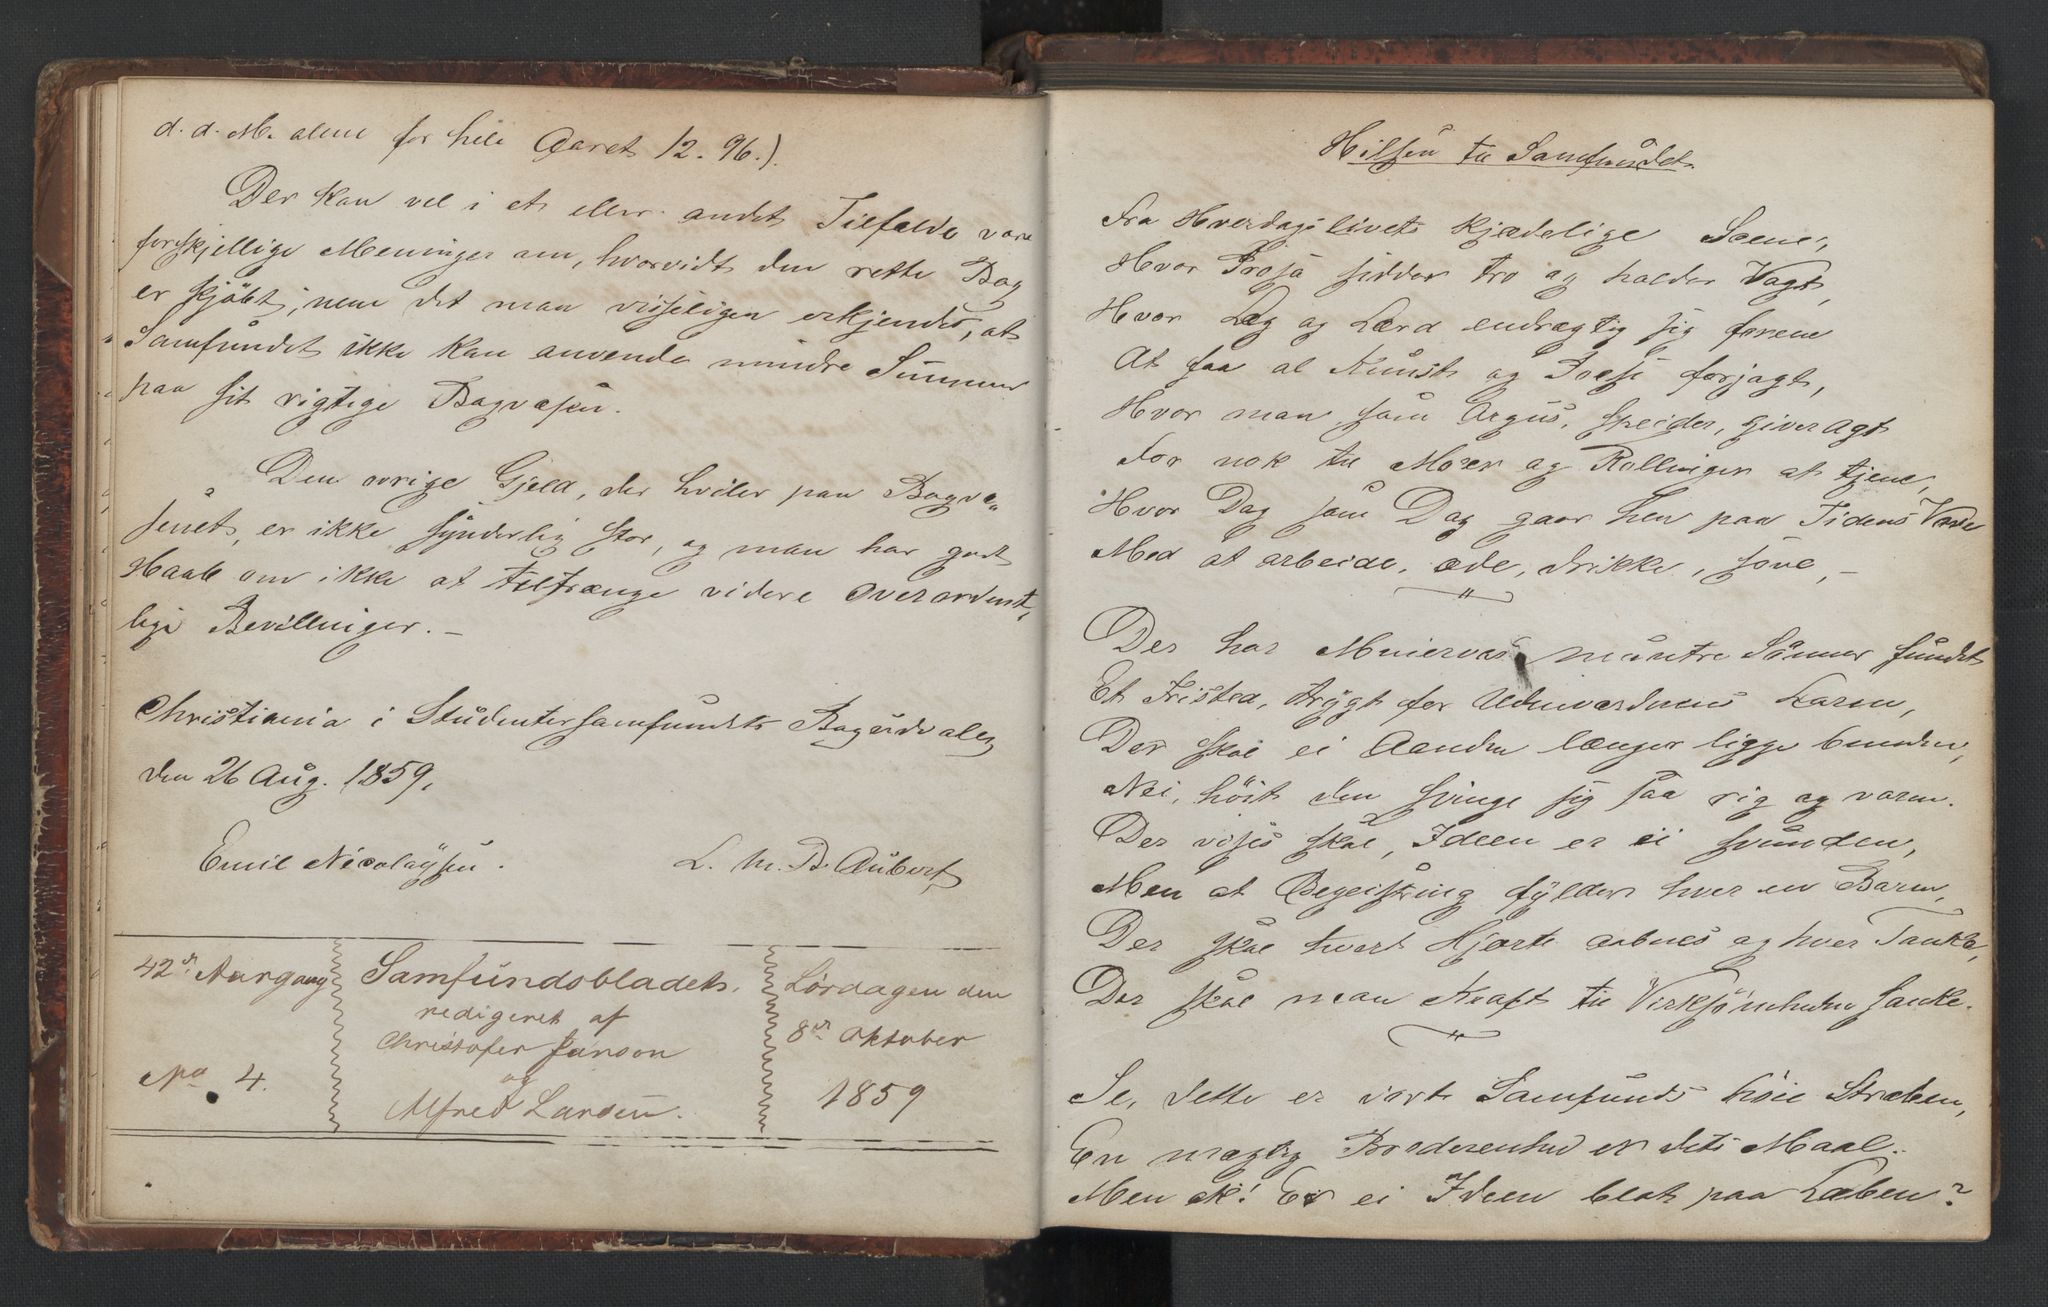 d. d. M. alene for hele Aaret 12. 96.).
Der kan vel i et eller andet Tilfælde være
forskjellige Meninger om, hvorvidt den rette Bog
er kjøbt; men det maa visseligen erkjendes, at
Samfundet ikke kan anvende mindre Summer
paa sit vigtige Bogvæsen.
Den øvrige Gjeld, der hviler paa Bogvæ-
senet, er ikke synderlig stor, og man har godt
Haab om ikke at tiltrænge videre overordent-
lige Bevillinger. –
Christiania i Studentersamfundets Bogudvalg
den 26 Aug. 1859.
Emil Nicolaysen. L. M. B. Aubert
42de Aargang
No 4.
Samfundsbladet.
redigeret af
Christofer Janson
og
Alfred Larsen.
Lørdagen den
8de Oktober
1859
Hilsen til Samfundet.
Fra Hverdagslivets kjædelige Scene,
Hvor Prosa sidder tro og holder Vagt,
Hvor Læg og Lærd endrægtig sig forene
At faa al Kunst og Poesi forjagt,
Hvor man som Argus, speider, giver agt
For nok til Moser og Rollinger at tjene,
Hvor Dag som Dag gaar hen paa Tidens
Med at arbeide, æde, drikke, sove, –
Der har Minervas muntre Sønner fundet
Et Fristed, trygt for Udenverdenens Larm,
Der skal ei Aanden længer ligge bunden,
Nei, høit den svinge sig saa rig og varm.
Der vises skal, Ideen er ei svunden,
Men at Begeistring fylder hver en Barm,
Der skal hvert Hjerte aabnes og hver Tanke,
Der skal man Kraft til Virksomheden sanke.
Se, dette er vort Samfunds høie Stræben,
En mægtig Broderenhed er dets Maal.
Men ak! Er ei Ideen blot paa Læben?